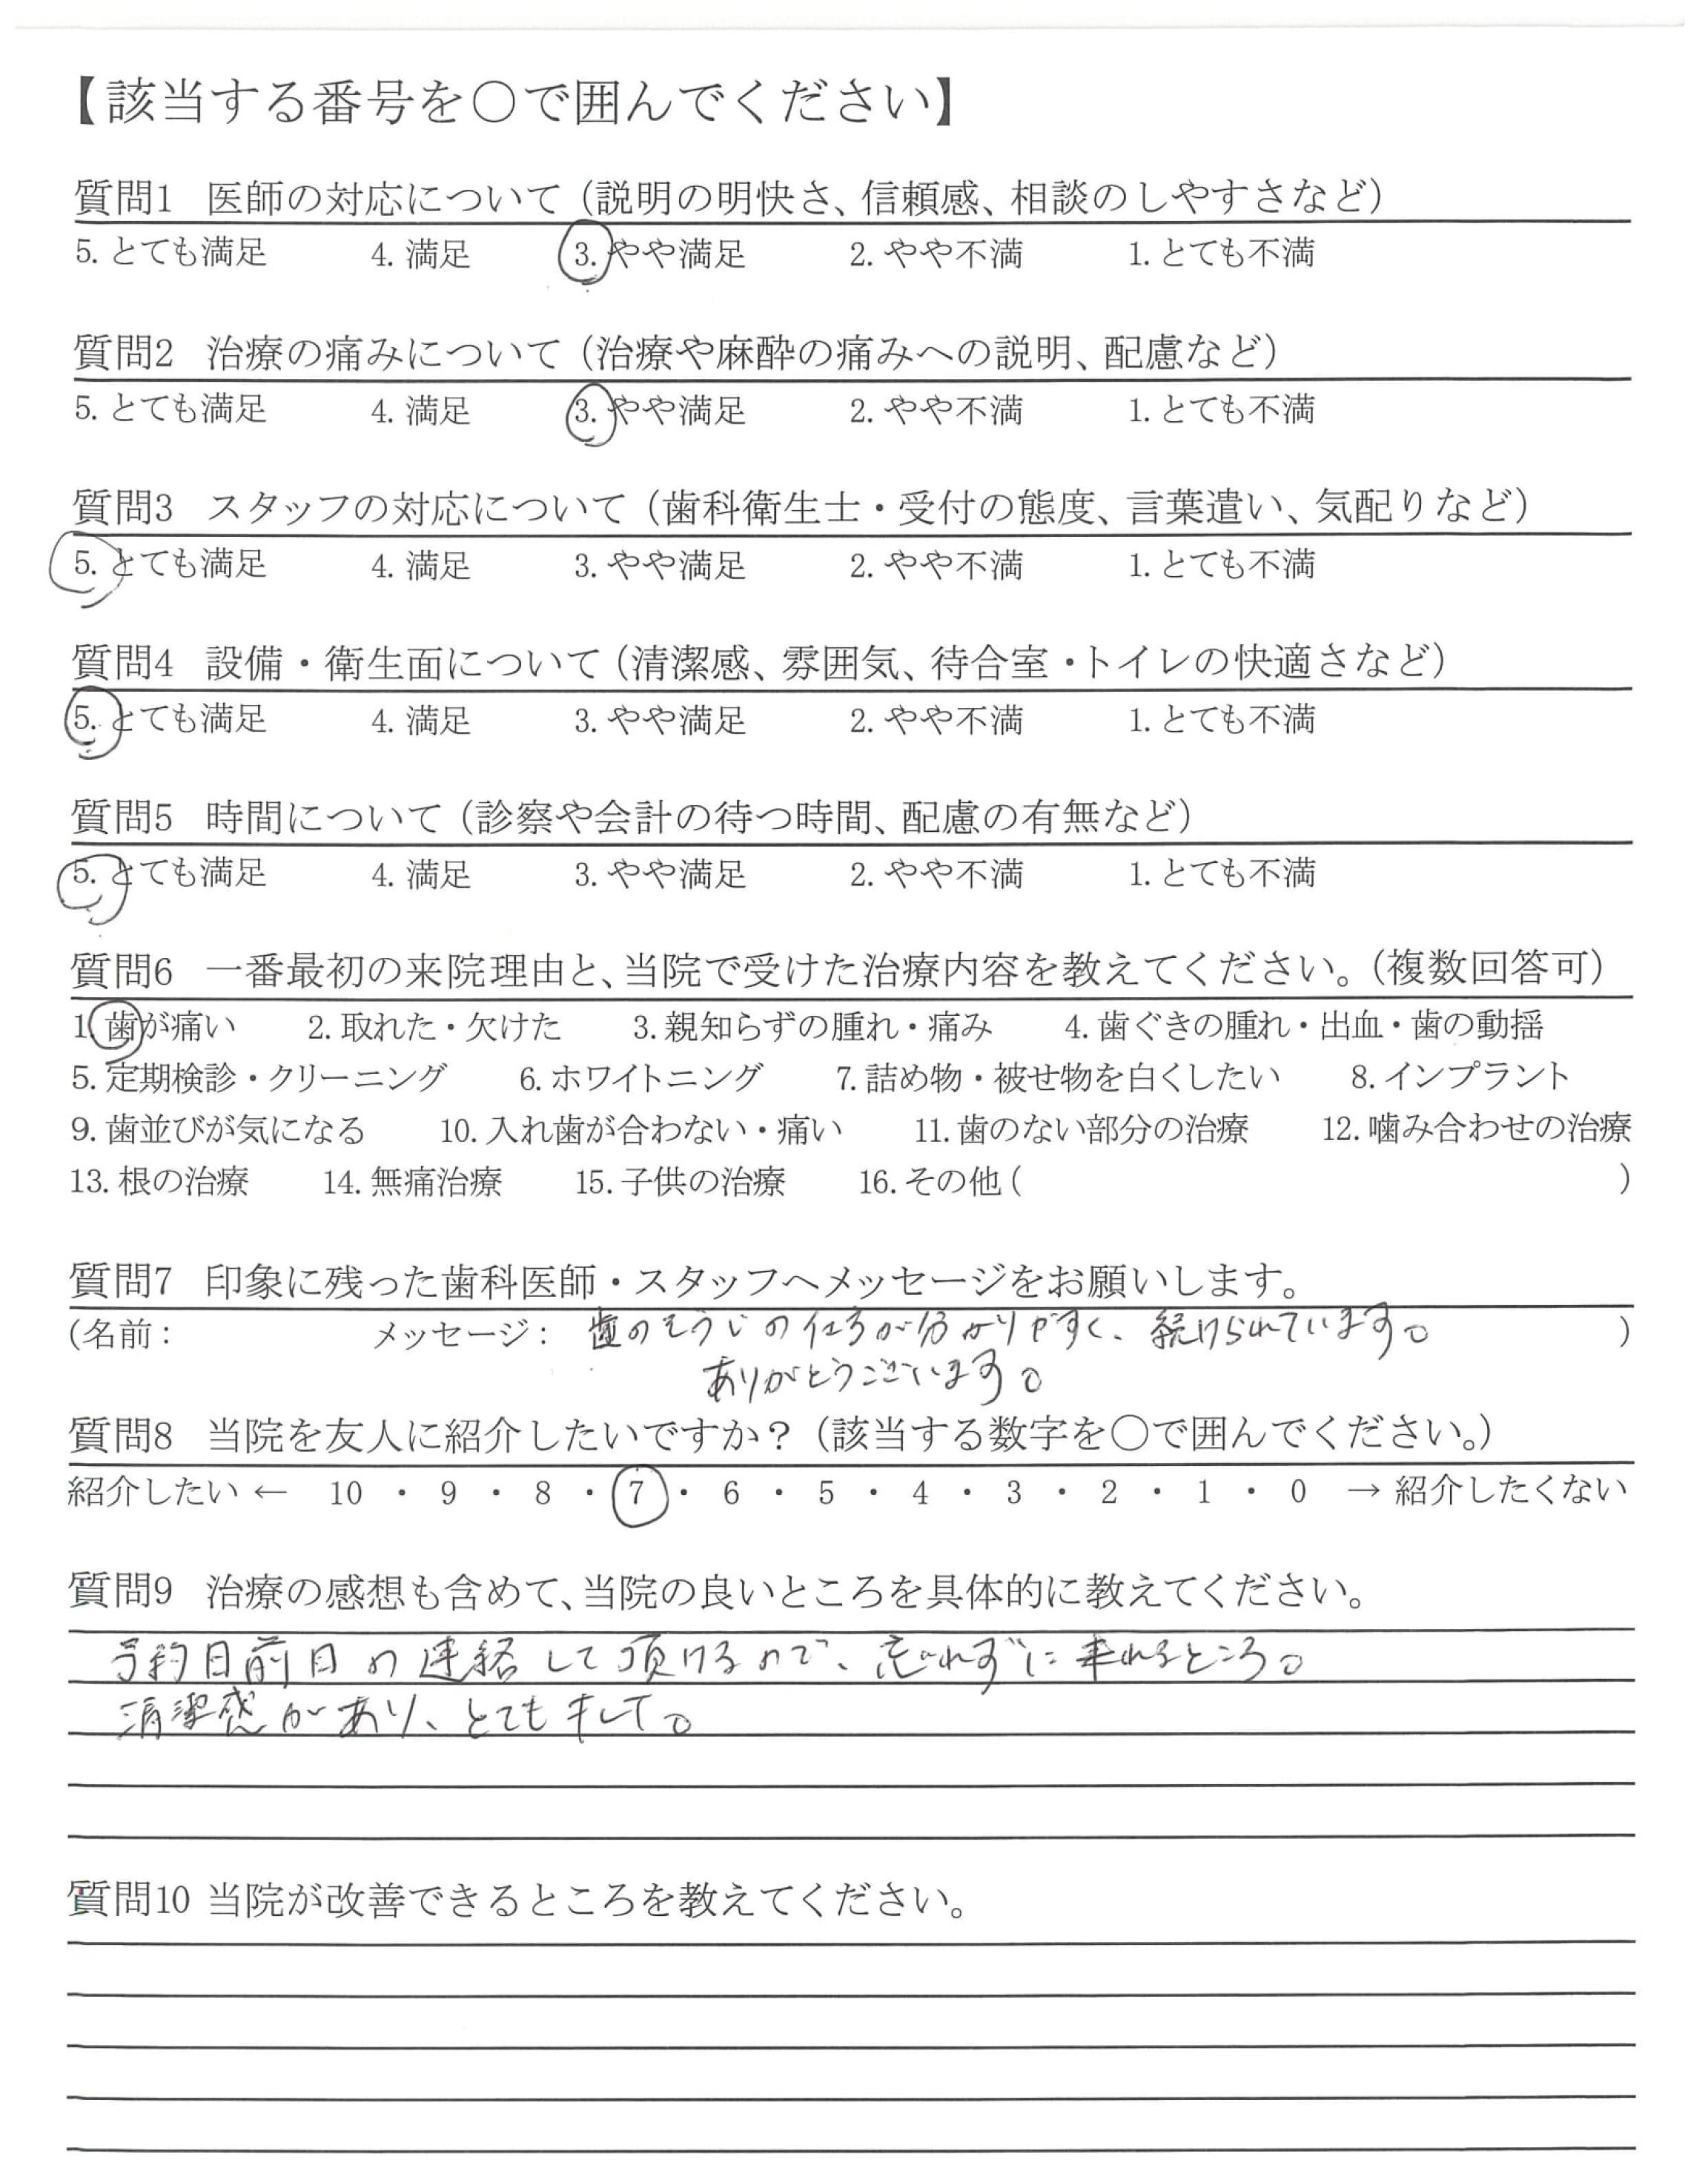 【該当する番号を〇で囲んでください】
質問1 医師の対応について（説明の明快さ、信頼感、相談のしやすさなど）
5. とても満足 4. 満足 3. やや満足 2. やや不満 1. とても不満
質問2 治療の痛みについて（治療や麻酔の痛みへの説明、配慮など）
5. とても満足 4. 満足 3. やや満足 2. やや不満 1. とても不満
質問3 スタッフの対応について（歯科衛生士・受付の態度、言葉遣い、気配りなど）
5. とても満足 4. 満足 3. やや満足 2. やや不満 1. とても不満
質問4 設備・衛生面について（清潔感、雰囲気、待合室・トイレの快適さなど）
5. とても満足 4. 満足 3. やや満足 2. やや不満 1. とても不満
質問5 時間について（診察や会計の待つ時間、配慮の有無など）
5. とても満足 4. 満足 3. やや満足 2. やや不満 1. とても不満
質問6 一番最初の来院理由と、当院で受けた治療内容を教えてください。（複数回答可）
1. 歯が痛い 2. 取れた・欠けた 3. 親知らずの腫れ・痛み 4. 歯ぐきの腫れ・出血・歯の動揺
5. 定期検診・クリーニング 6. ホワイトニング 7. 詰め物・被せ物を白くしたい 8. インプラント
9. 歯並びが気になる 10. 入れ歯が合わない・痛い 11. 歯のない部分の治療 12. 噛み合わせの治療
13. 根の治療 14. 無痛治療 15. 子供の治療 16. その他（ ）
質問7 印象に残った歯科医師・スタッフへメッセージをお願いします。
（名前： メッセージ： 歯のそうじの仕方が分かりやすく、続けられています。 ）
ありがとうございます。
質問8 当院を友人に紹介したいですか？（該当する数字を〇で囲んでください。）
紹介したい ← 10 ・ 9 ・ 8 ・ 7 ・ 6 ・ 5 ・ 4 ・ 3 ・ 2 ・ 1 ・ 0 → 紹介したくない
質問9 治療の感想も含めて、当院の良いところを具体的に教えてください。
予約日前日の連絡して頂けるので、忘れずに来れるところ。
清潔感があり、とても
質問10 当院が改善できるところを教えてください。